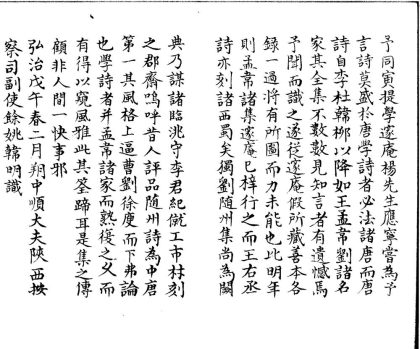 予同寅提學邃庵楊先生應寧嘗為予
言詩莫盛於唐學詩者必法諸唐而唐
詩自李杜韓柳以降如王孟韋劉諸名
家其全集不數數見知言者有遺憾焉
予聞而識之遂從邃庵假所藏善本各
錄一過將有所圖而力未能也比明年
則孟韋諸集邃庵已梓行之而王右丞
詩亦刻諸西蜀矣獨劉隨州集尚為闕
典乃謀諸臨洮守李君紀僦工市材刻
之郡齋嗚呼昔人評品隨州詩為中唐
第一其風格上逼曹劉徐庾而下弗論
也學詩者并孟韋諸家而熟復之乂而
有得以窺風雅此其筌蹄耳是集之傳
顧非人間一快事邪
弘治戊午春二月朔中順大夫陝西按
察司副使餘姚韓明識